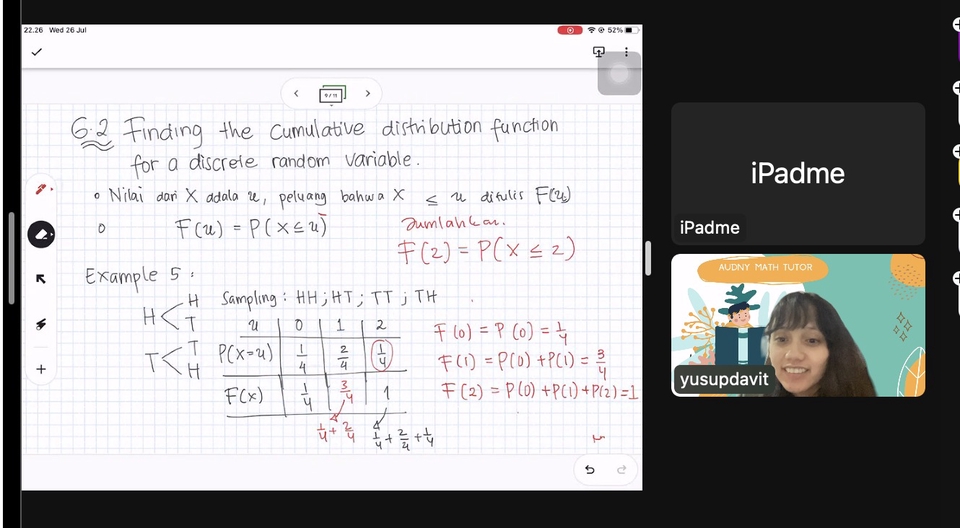 22.26 Wed 26 Jul
52%
9/11
6.2 Finding the cumulative distribution function
for a discrete random variable.
Nilai dari X adala x, peluang bahwa X ≤ x ditulis F(x)
F(x) = P(X ≤ x)
Jumlahkan.
F(2) = P(X ≤ 2)
Example 5 :
H < H T
T < T H
Sampling : HH ; HT ; TT ; TH
x 0 1 2
P(X=x) 1/4 2/4 1/4
F(x) 1/4 3/4 1
1/4 + 2/4
1/4 + 2/4 + 1/4
F(0) = P(0) = 1/4
F(1) = P(0) + P(1) = 3/4
F(2) = P(0) + P(1) + P(2) = 1
iPadme
iPadme
AUDNY MATH TUTOR
yusupdavit